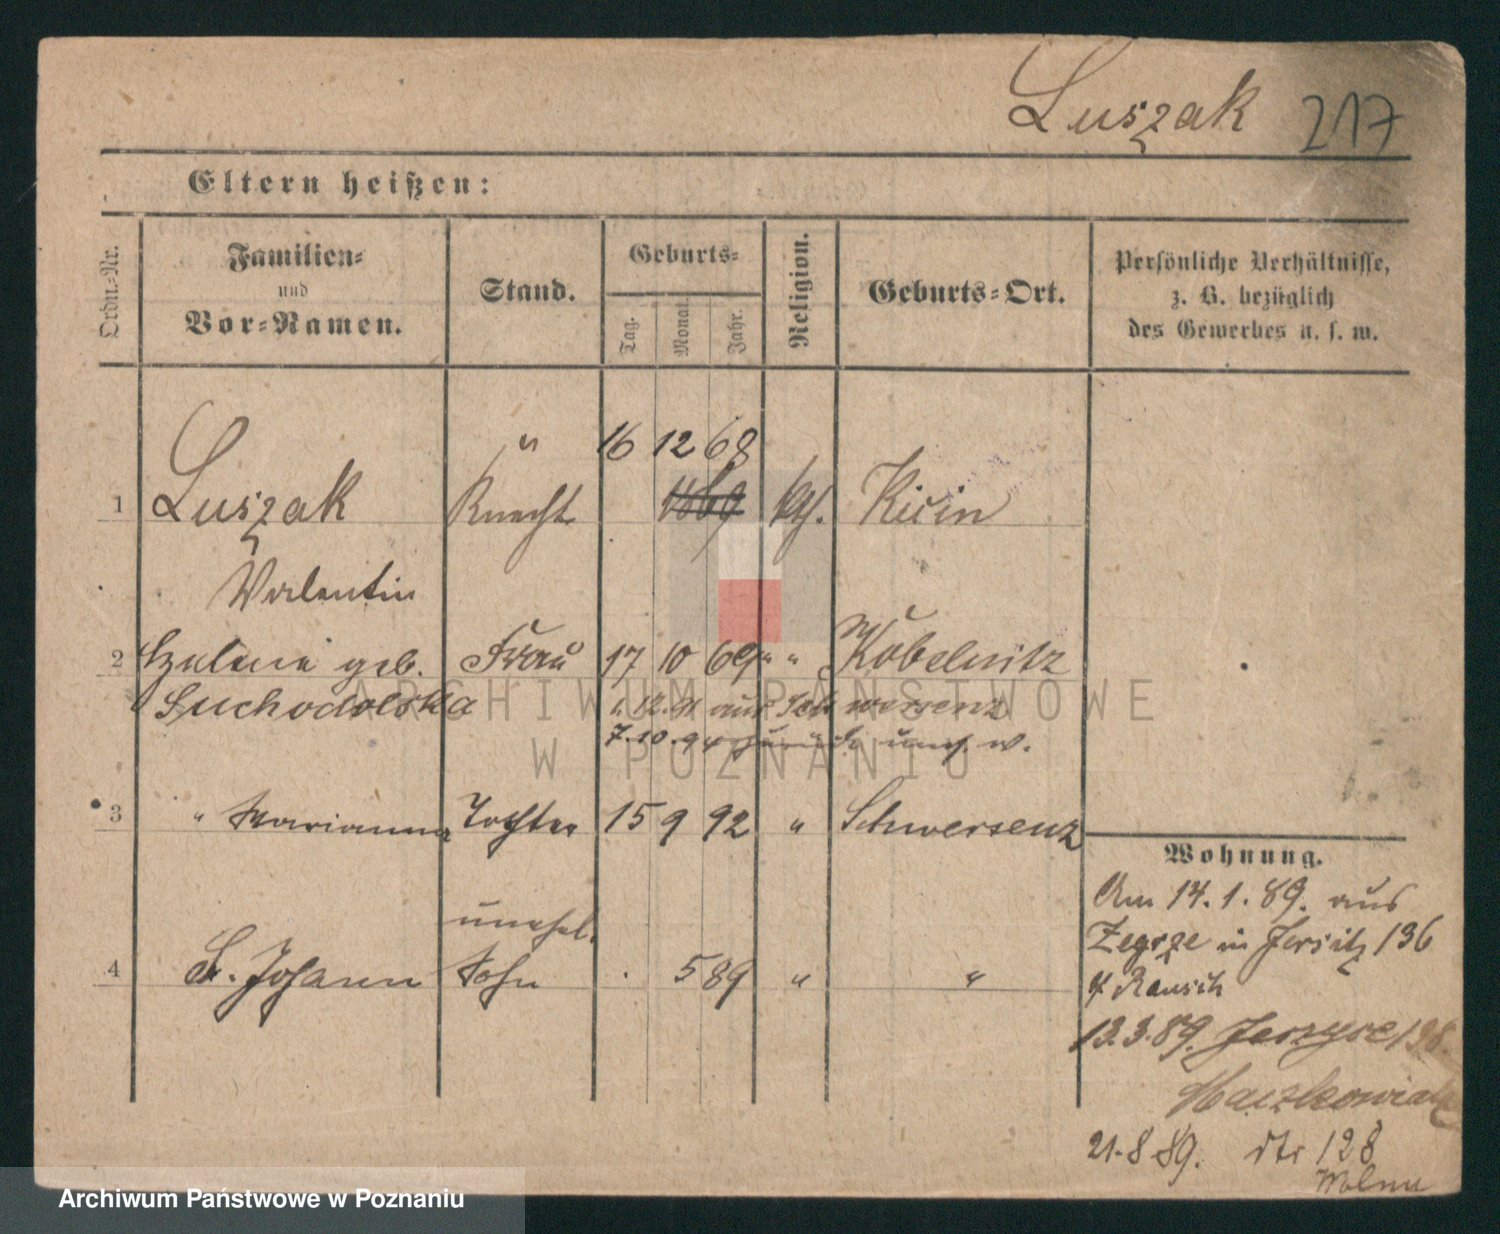 Luszak 217
Eltern heißen:
Ordn.-Nr.
Familien-
und
Vor-Namen.
Stand.
Geburts-
Tag.
Monat.
Jahr.
Religion.
Geburts-Ort.
Persönliche Verhältnisse,
z. B. bezüglich
des Gewerbes u. s. w.
" 16 12 68
1 Luszak Knecht 1869 kth. Kicin
Valentin
2 geb. Frau 17 10 69 " " Kobelnitz
Suchodolska
12. 91 aus Schwersenz
7.10.94 zurück
3 " Marianna Tochter 15 9 92 " Schwersenz
unehel.
4 L. Johann Sohn 5 89 " "
Wohnung.
Am 14.1.89. aus
Zegrze in Jersitz 136
Rausch
13.3.89. Jerzyce 138
21.8.89. dto 128
ARCHIWUM PAŃSTWOWE
W POZNANIU
Archiwum Państwowe w Poznaniu